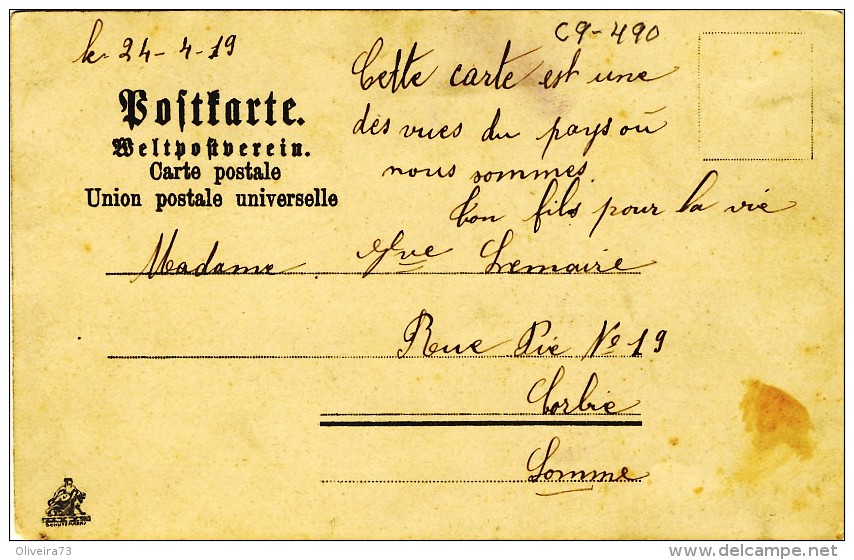 le 24-4-19
C9-490
Postkarte.
Weltpostverein.
Carte postale
Union postale universelle
Cette carte est une
des vues du pays où
nous sommes.
ton fils pour la vie
Madame Lemaire
Rue Pie No 19
Corbie
Somme
SCHUTZMARKE
Oliveira73
http://www.delcampe.net